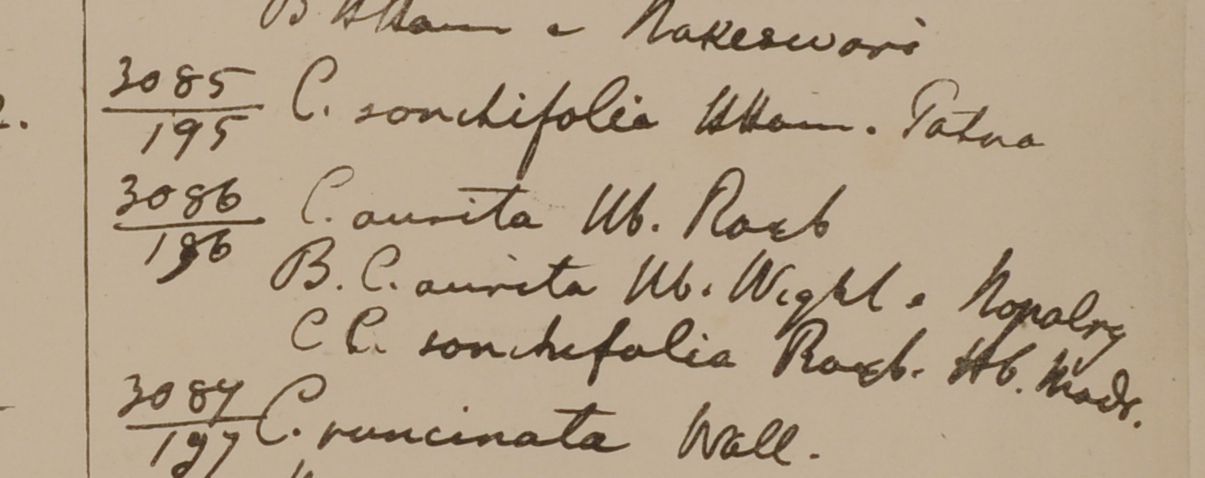 B HHam e Nakeswari
2. 3085/195 C. sonchifolia HHam. Patna
3086/196 C. aurita Hb. Roxb
B. C. aurita Hb. Wight e Nopalry
C C. sonchifolia Roxb. Hb. Madr.
3087/197 C. runcinata Wall.